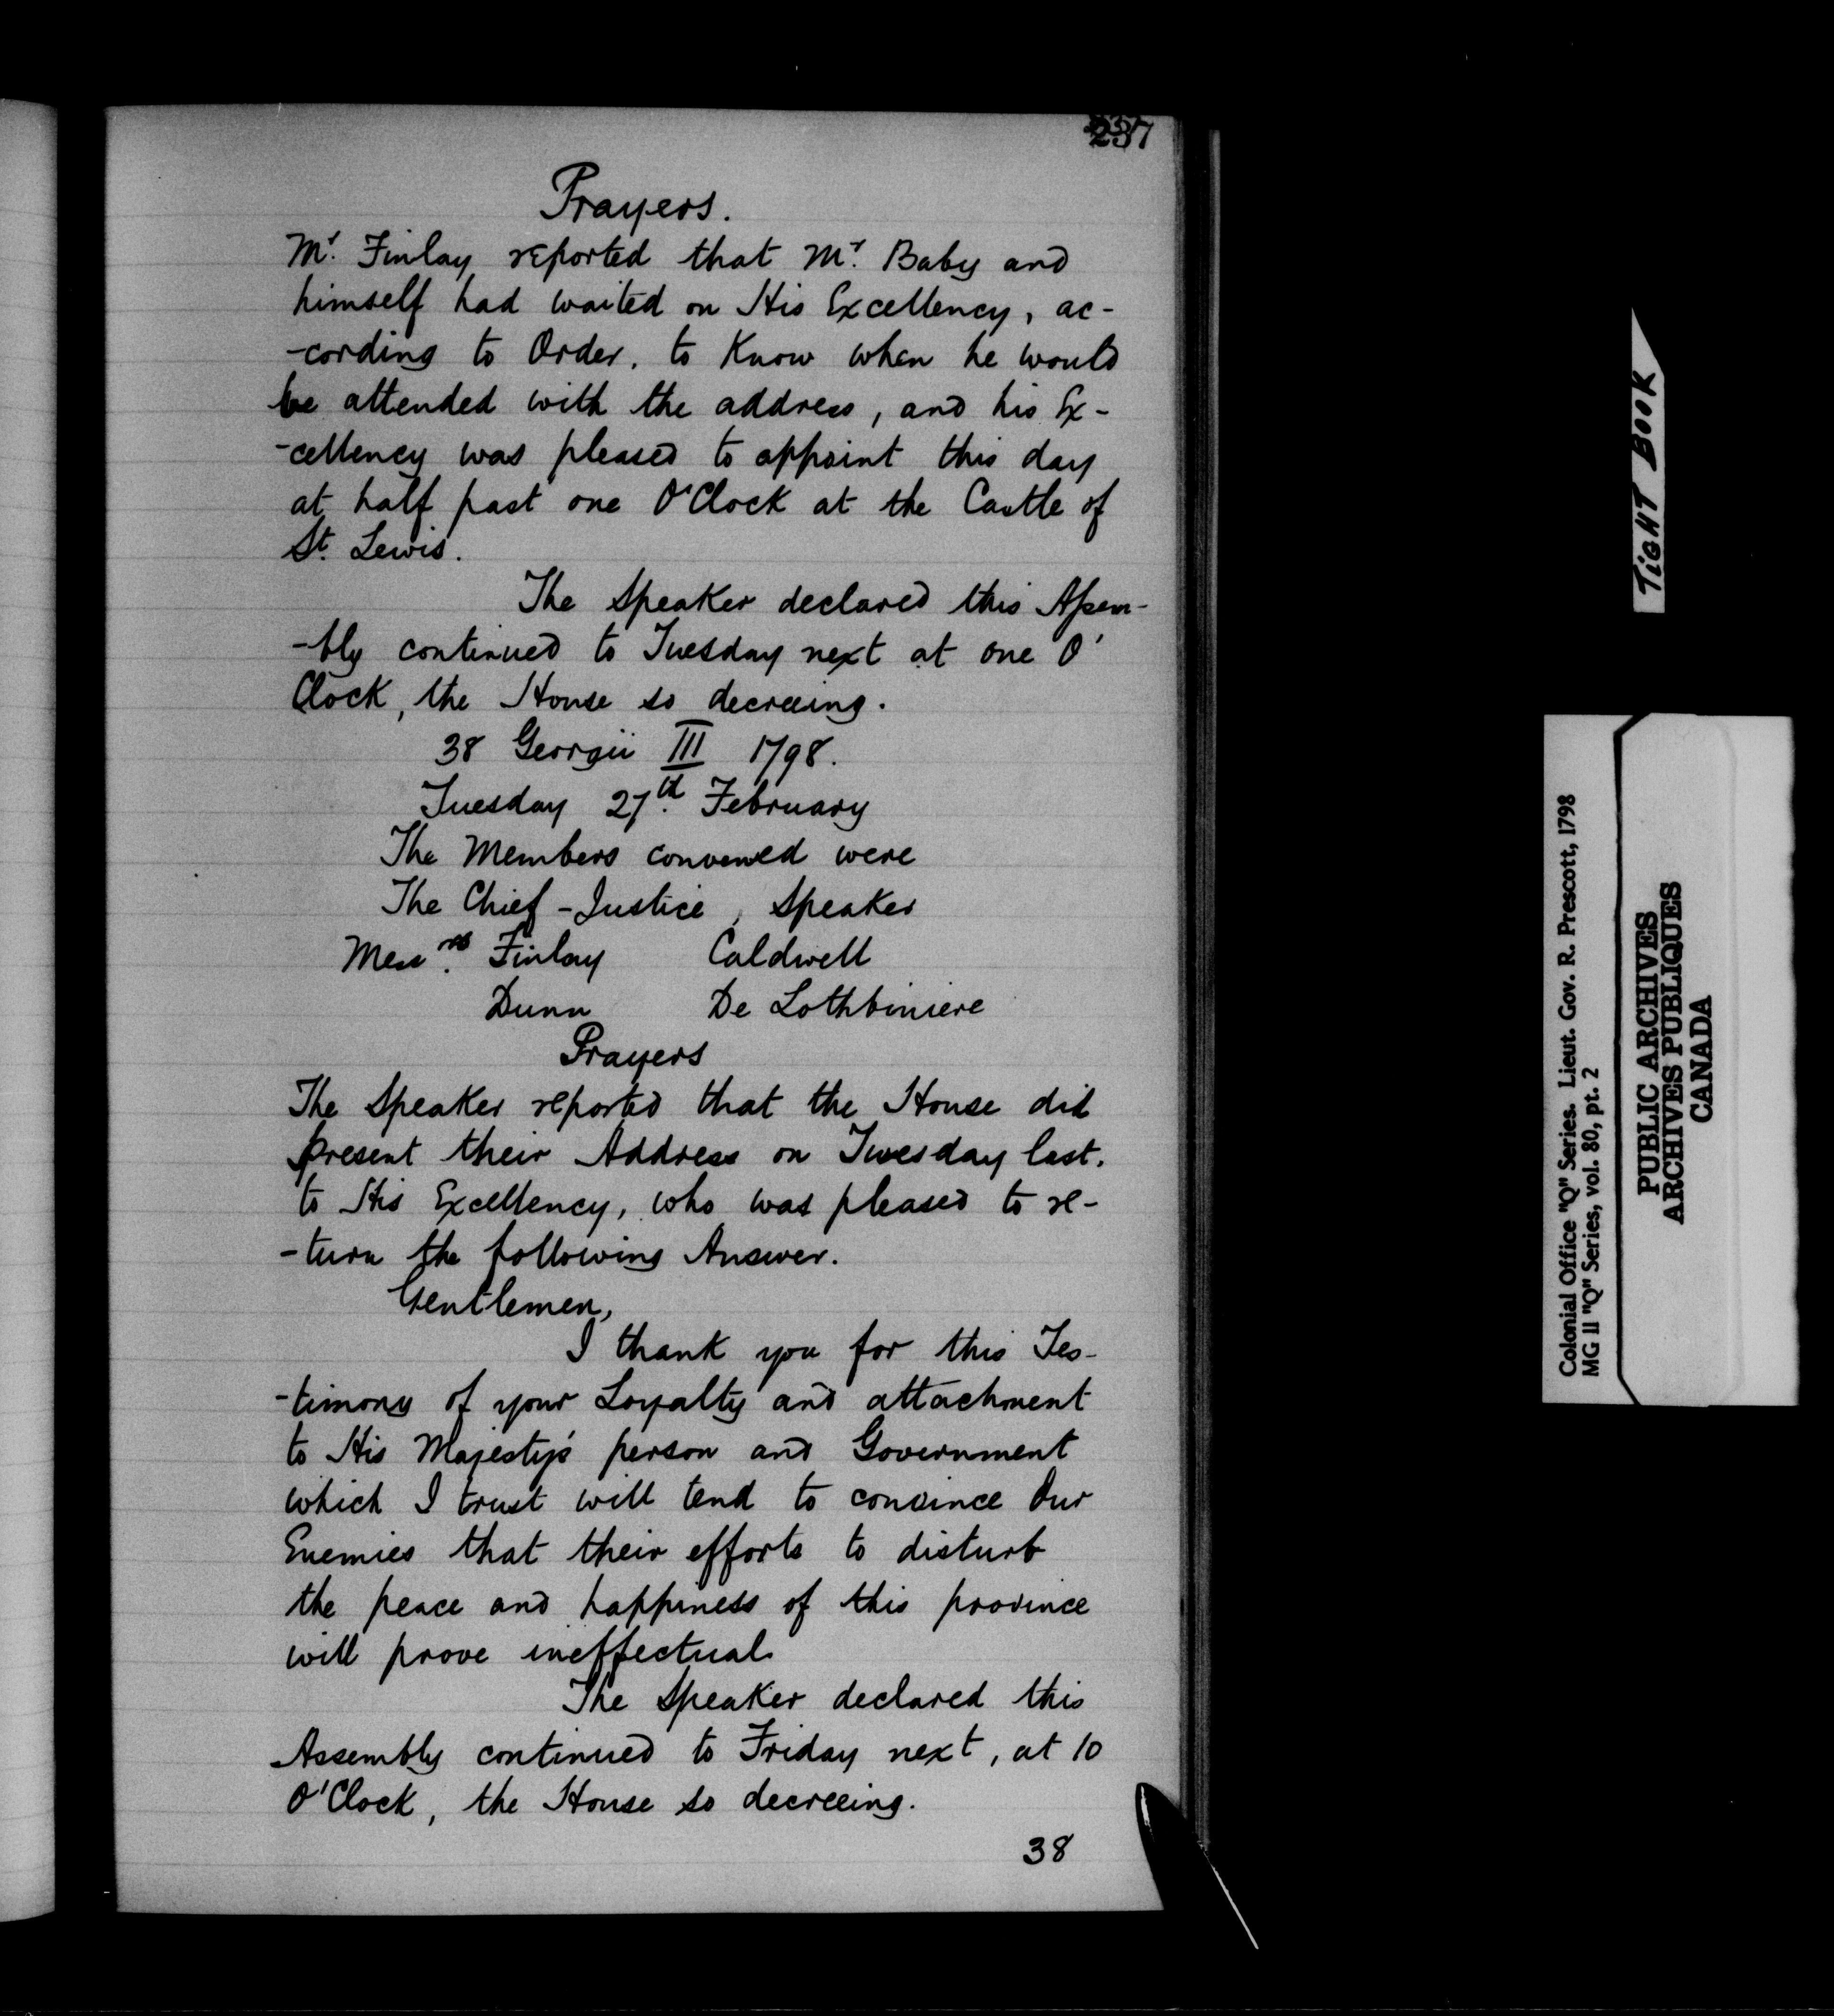 237
Prayers.
Mr. Finlay reported that Mr. Baby and
himself had waited on His Excellency, ac-
-cording to Order, to Know when he would
be attended with the address, and his Ex-
-cellency was pleased to appoint this day
at half past one O'Clock at the Castle of
St. Lewis.
The Speaker declared this Assem-
-bly continued to Tuesday next at one O'
Clock, the House so decreeing.
38 Georgii III 1798.
Tuesday 27th. February
The Members convened were
The Chief-Justice, Speaker
Messrs. Finlay Caldwell
Dunn De Lothbiniere
Prayers
The Speaker reported that the House did
present their Address on Tuesday last.
to His Excellency, who was pleased to re-
-turn the following Answer.
Gentlemen,
I thank you for this Tes-
-timony of your Loyalty and attachment
to His Majesty's person and Government
which I trust will tend to convince Our
Enemies that their efforts to disturb
the peace and happiness of this province
will prove ineffectual.
The Speaker declared this
Assembly continued to Friday next, at 10
O'Clock, the House so decreeing.
38
TIGHT BOOK
Colonial Office "Q" Series. Lieut. Gov. R. Prescott, 1798
MG 11 "Q" Series, vol. 80, pt. 2
PUBLIC ARCHIVES
ARCHIVES PUBLIQUES
CANADA